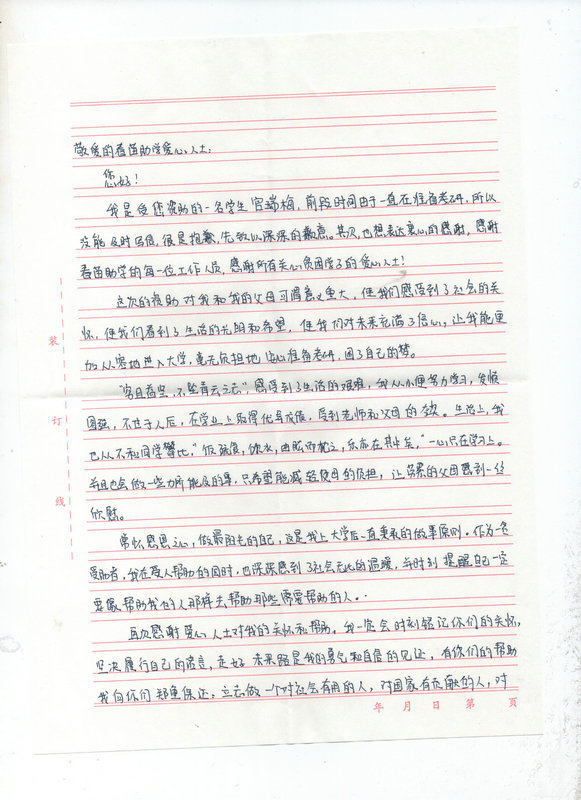 敬爱的春苗助学爱心人士:
您好!
我是受您资助的一名学生官瑞梅,前段时间由于一直在准备考研,所以
没能及时写信,很是抱歉,先致以深深的歉意。其次,也想表达衷心的感谢,感谢
春苗助学的每一位工作人员,感谢所有关心贫困学子的爱心人士!
这次的援助对我和我的父母可谓意义重大,使我们感受到了社会的关
怀,使我们看到了生活的光明和希望,使我们对未来充满了信心,让我能更
加从容地进入大学,毫无负担地安心准备考研,圆了自己的梦。
"穷且益坚,不坠青云之志",感受到了生活的艰难,我从小便努力学习,发愤
图强,不甘于人后,在学业上取得优异成绩,受到老师和父母的 。生活上,我
也从不和同学攀比,"饭疏食,饮水,曲肱而枕之,乐亦在其中矣,"一心只在学习上。
并且也会做一些力所能及的事,只希望能减轻父母的负担,让劳累的父母感到一丝
欣慰。
常怀感恩之心,做最阳光的自己,这是我上大学后一直秉承的做事原则。作为一名
受助者,我在受人帮助的同时,也深深感到了社会无比的温暖,并时刻提醒自己一定
要像帮助我的人那样去帮助那些需要帮助的人。
再次感谢爱心人士对我的关怀和帮助。我一定会时刻铭记你们的关怀,
坚决履行自己的诺言,走好未来路是我的勇气和自信的见证,有你们的帮助
我向你们郑重保证:立志做一个对社会有用的人,对国家有贡献的人,对
装
订
线
年 月 日 第 页